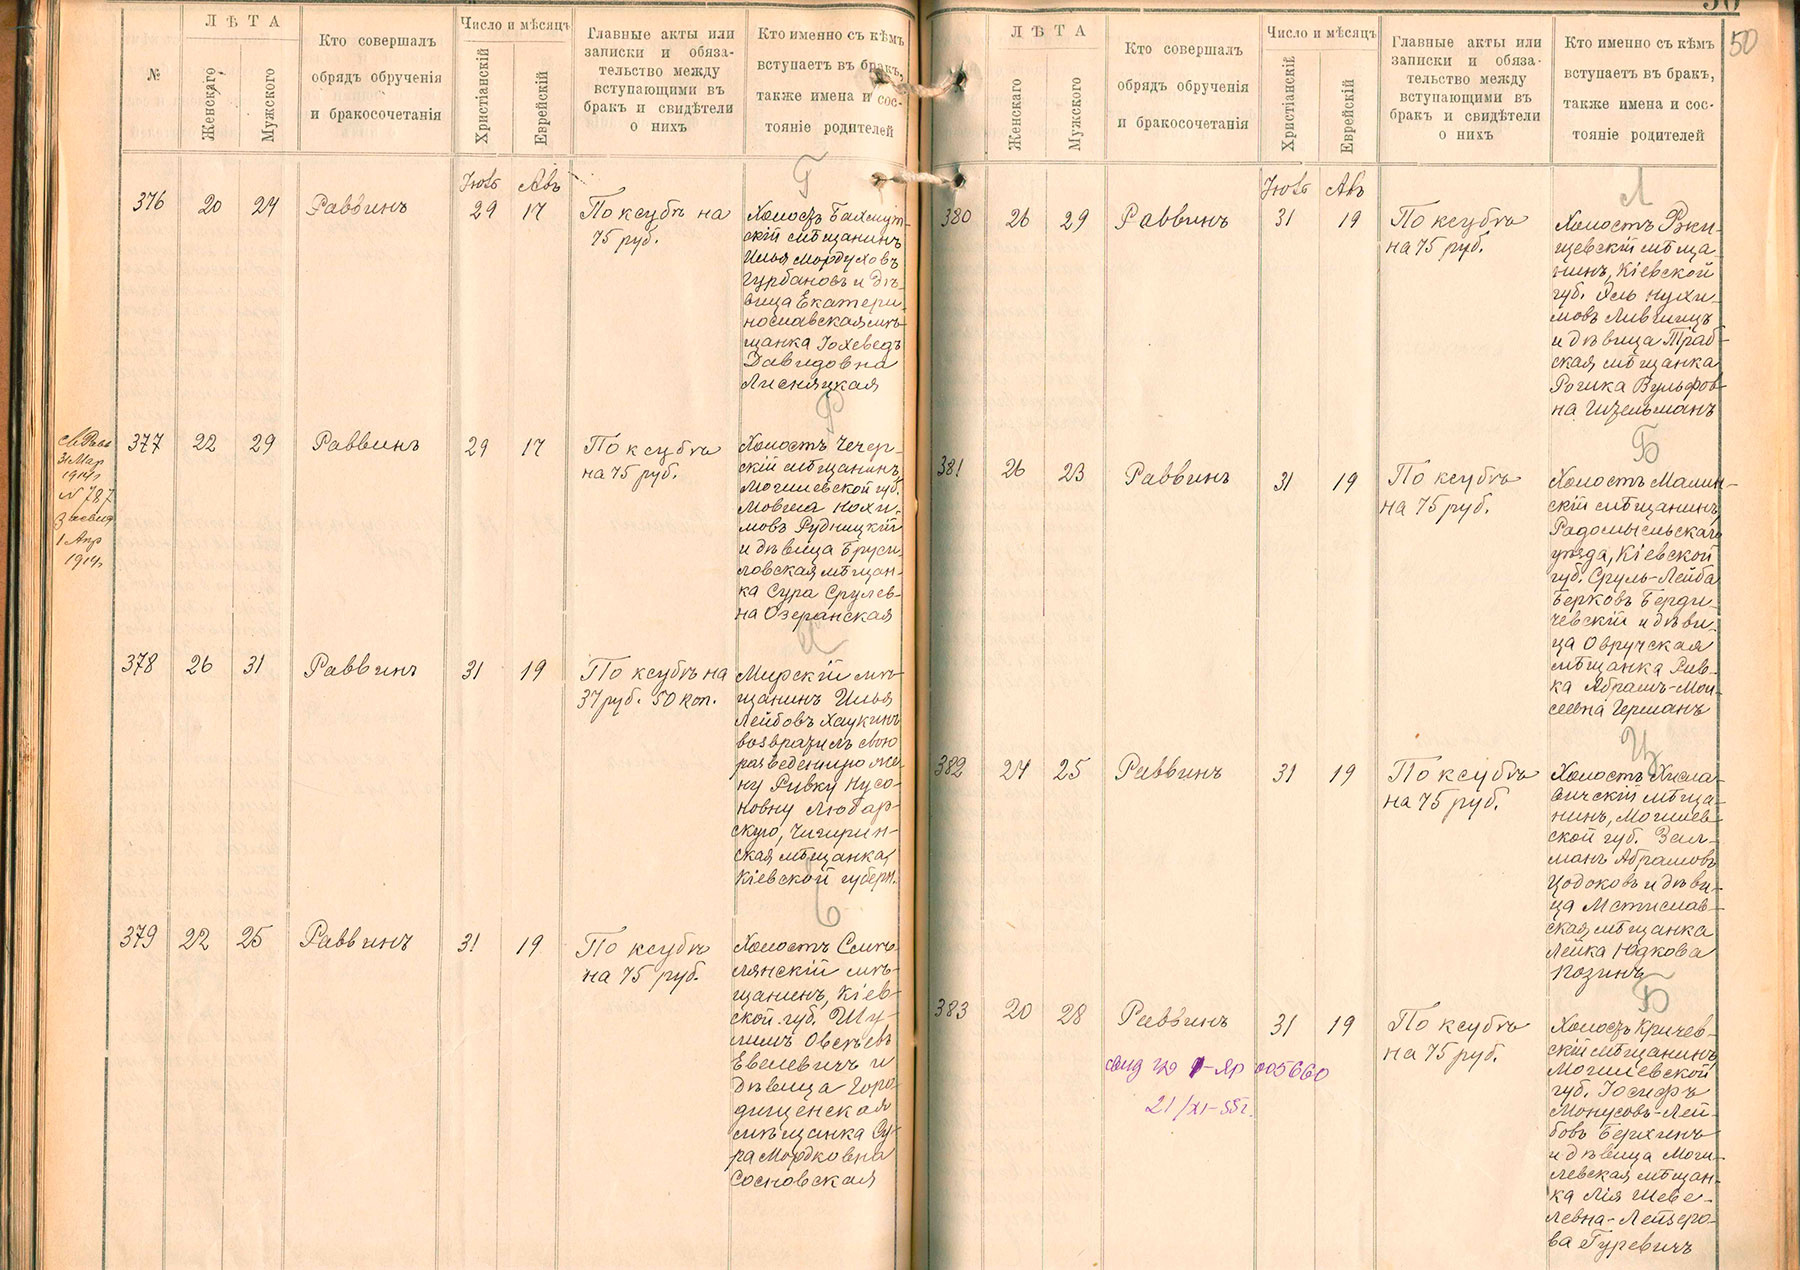 50
№
ЛѢТА
Женскаго
Мужского
Кто совершалъ
обрядъ обрученія
и бракосочетанія
Число и мѣсяцъ
Христіанскій
Еврейскій
Главные акты или
записки и обяза-
тельство между
вступающими въ
бракъ и свидѣтели
о нихъ
Кто именно съ кѣмъ
вступаетъ въ бракъ,
также имена и сос-
тояніе родителей
Г
376
20
24
Раввинъ
Авъ
29
17
По ксубѣ на
75 руб.
Холостъ Бахмут-
скій мѣщанинъ
Илья Мордуховъ
Гурбановъ и дѣ-
вица Екатери-
нославская мѣ-
щанка Іохеведъ
Давидовна
Лисняцкая
Р
31 Мар
1914 г
N 787
1 Апр
1914 г
377
22
29
Раввинъ
29
17
По ксубѣ
на 75 руб.
Холостъ Чечер-
скій мѣщанинъ,
Могилевской губ.
Мовша Нохи-
мовъ Рудницкій
и дѣвица Бруси-
ловская мѣщан-
ка Сура Срулев-
на Озеранская
378
26
31
Раввинъ
31
19
По ксубѣ на
37 руб. 50 коп.
Мирскій мѣ-
щанинъ Илья
Лейбовъ Хаукинъ
возвратилъ свою
разведенную же-
ну Ривку Нусо-
новну Любар-
скую, Чигирин-
ская мѣщанка,
Кіевской губерн.
С
379
22
25
Раввинъ
31
19
По ксубѣ
на 75 руб.
Холостъ Смѣ-
лянскій мѣ-
щанинъ, Кіев-
ской губ. Шу-
лимъ Овсѣевъ
Евелевичъ и
дѣвица Горо-
дищенская
мѣщанка Су-
ра Мордковна
Сосновская
ЛѢТА
Женскаго
Мужского
Кто совершалъ
обрядъ обрученія
и бракосочетанія
Число и мѣсяцъ
Христіанскій
Еврейскій
Главные акты или
записки и обяза-
тельство между
вступающими въ
бракъ и свидѣтели
о нихъ
Кто именно съ кѣмъ
вступаетъ въ бракъ,
также имена и сос-
тояніе родителей
Л
380
26
29
Раввинъ
Авъ
31
19
По ксубѣ
на 75 руб.
Холостъ Ржи-
щевскій мѣща-
нинъ, Кіевской
губ. Эль Нухи-
мовъ Лившицъ
и дѣвица Траб-
ская мѣщанка
Рошка Вульфов-
на Шзельманъ
Б
381
26
23
Раввинъ
31
19
По ксубѣ
на 75 руб.
Холостъ Малин-
скій мѣщанинъ,
Радомысльскаго
уѣзда, Кіевской
губ. Сруль-Лейба
Берковъ Берди-
чевскій и дѣви-
ца Овручская
мѣщанка Рив-
ка Абрамъ-Мои-
сеевна Германъ
Ц
382
24
25
Раввинъ
31
19
По ксубѣ
на 75 руб.
Холостъ Хисла-
вичскій мѣща-
нинъ, Могилев-
ской губ. Зал-
манъ Абрамовъ
Цодоковъ и дѣви-
ца Мстислав-
ская мѣщанка
Лейка Юдкова
Козинъ
Б
383
20
28
Раввинъ
31
19
По ксубѣ
на 75 руб.
Холостъ Кричев-
скій мѣщанинъ,
Могилевской
губ. Іосифъ
Монусовъ-Лей-
бовъ Берхинъ
и дѣвица Моги-
левская мѣщан-
ка Лія Шеве-
левна-Лейзеро-
ва Гуревичъ
005660
21/XI-55 г.